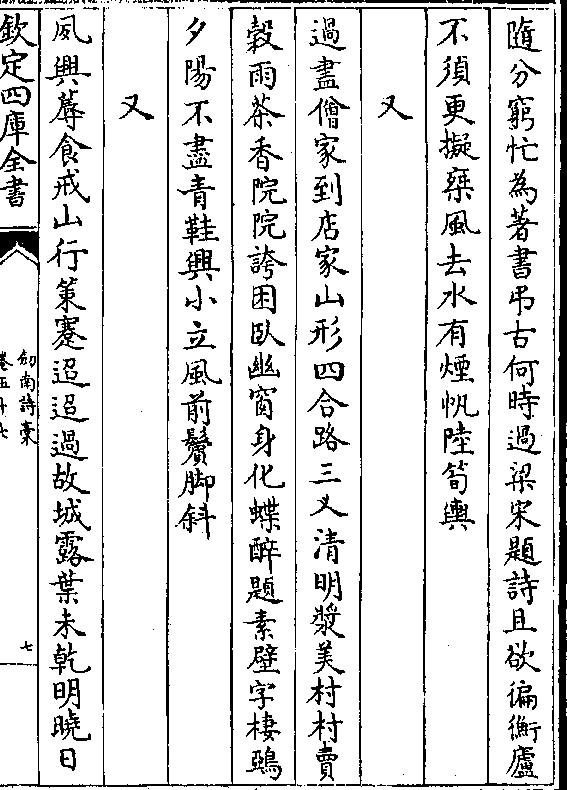 隨分窮忙為著書弔古何時過梁宋題詩且欲徧衡廬
不須更擬椉風去水有煙帆陸筍輿
又
過盡僧家到店家山形四合路三叉清明漿美村村賣
穀雨茶香院院誇困臥幽窗身化蝶醉題素壁字棲鵶
夕陽不盡青鞋興小立風前鬢脚斜
又
夙興蓐食戒山行策蹇迢迢過故城露葉未乾明曉日
欽定四庫全書
劍南詩稾
卷五十七
七